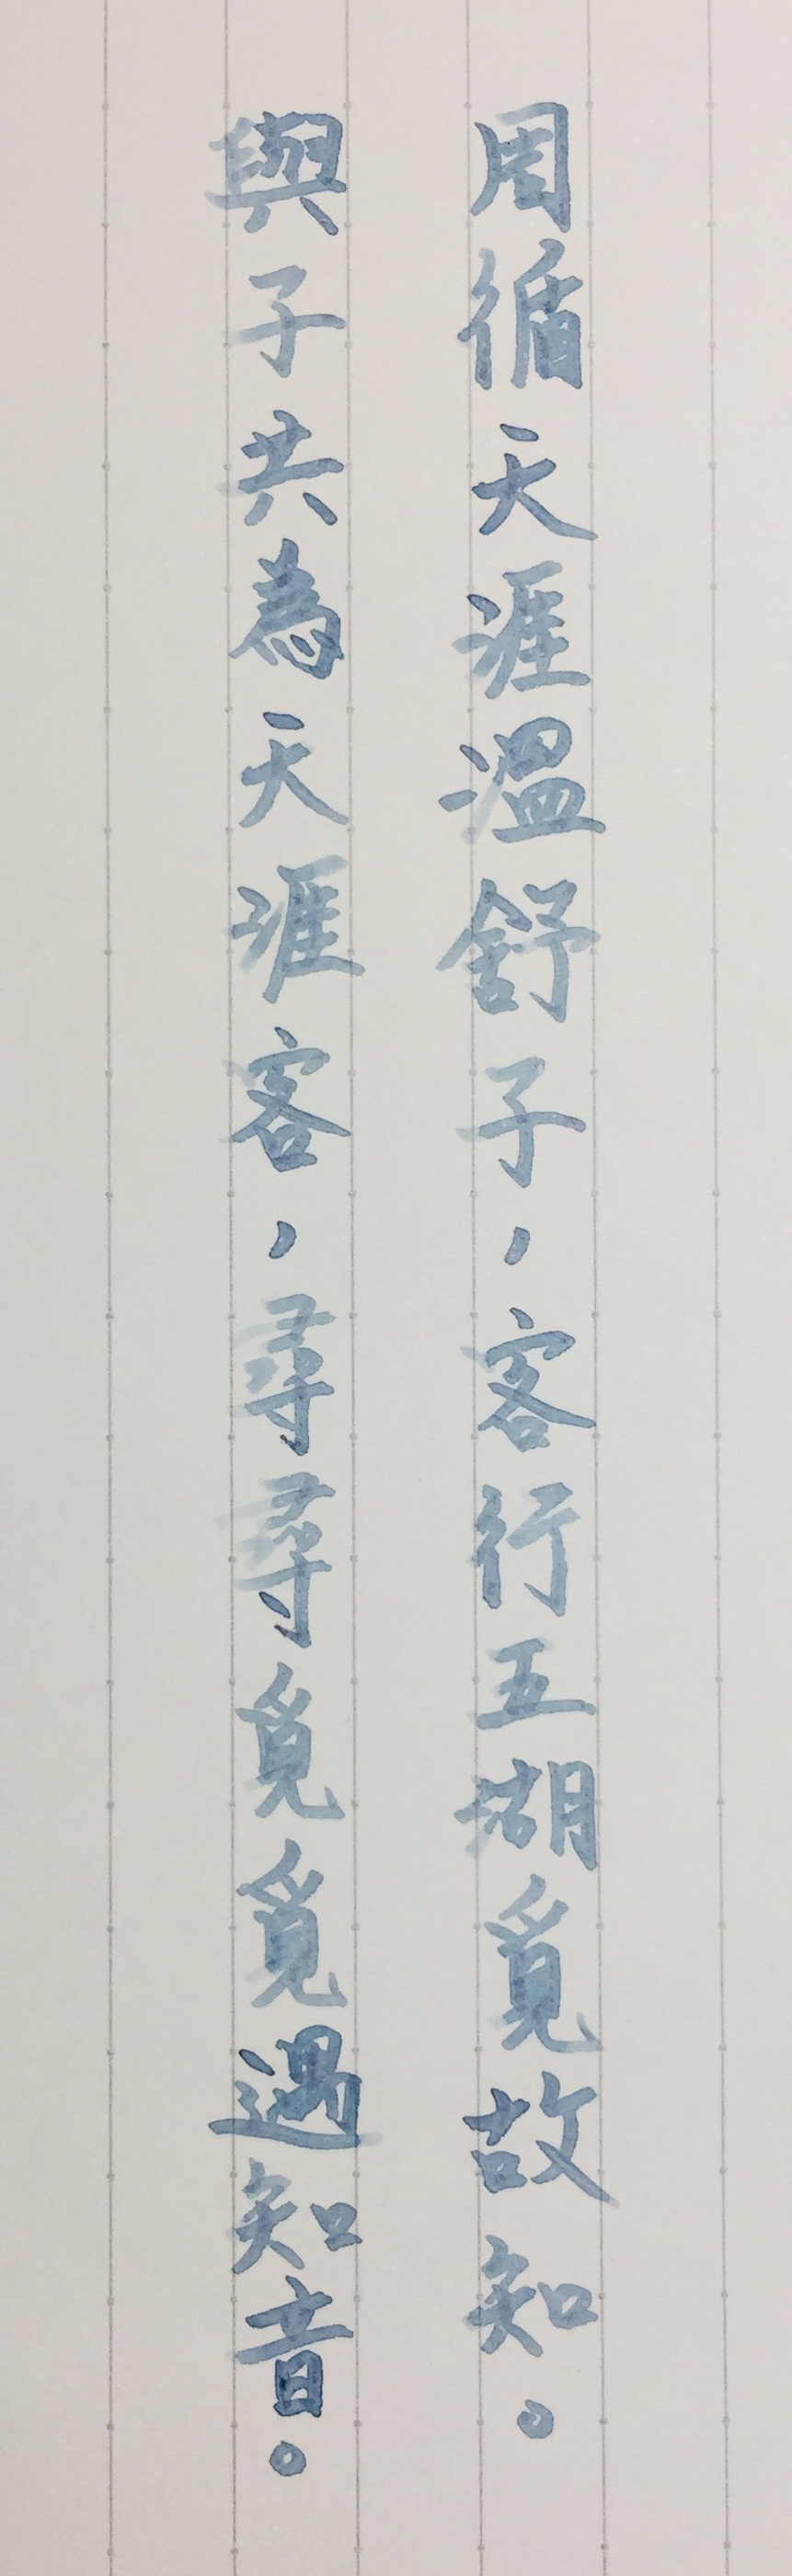 周循天涯溫舒子，客行五湖覓故知。
與子共為天涯客，尋尋覓覓遇知音。